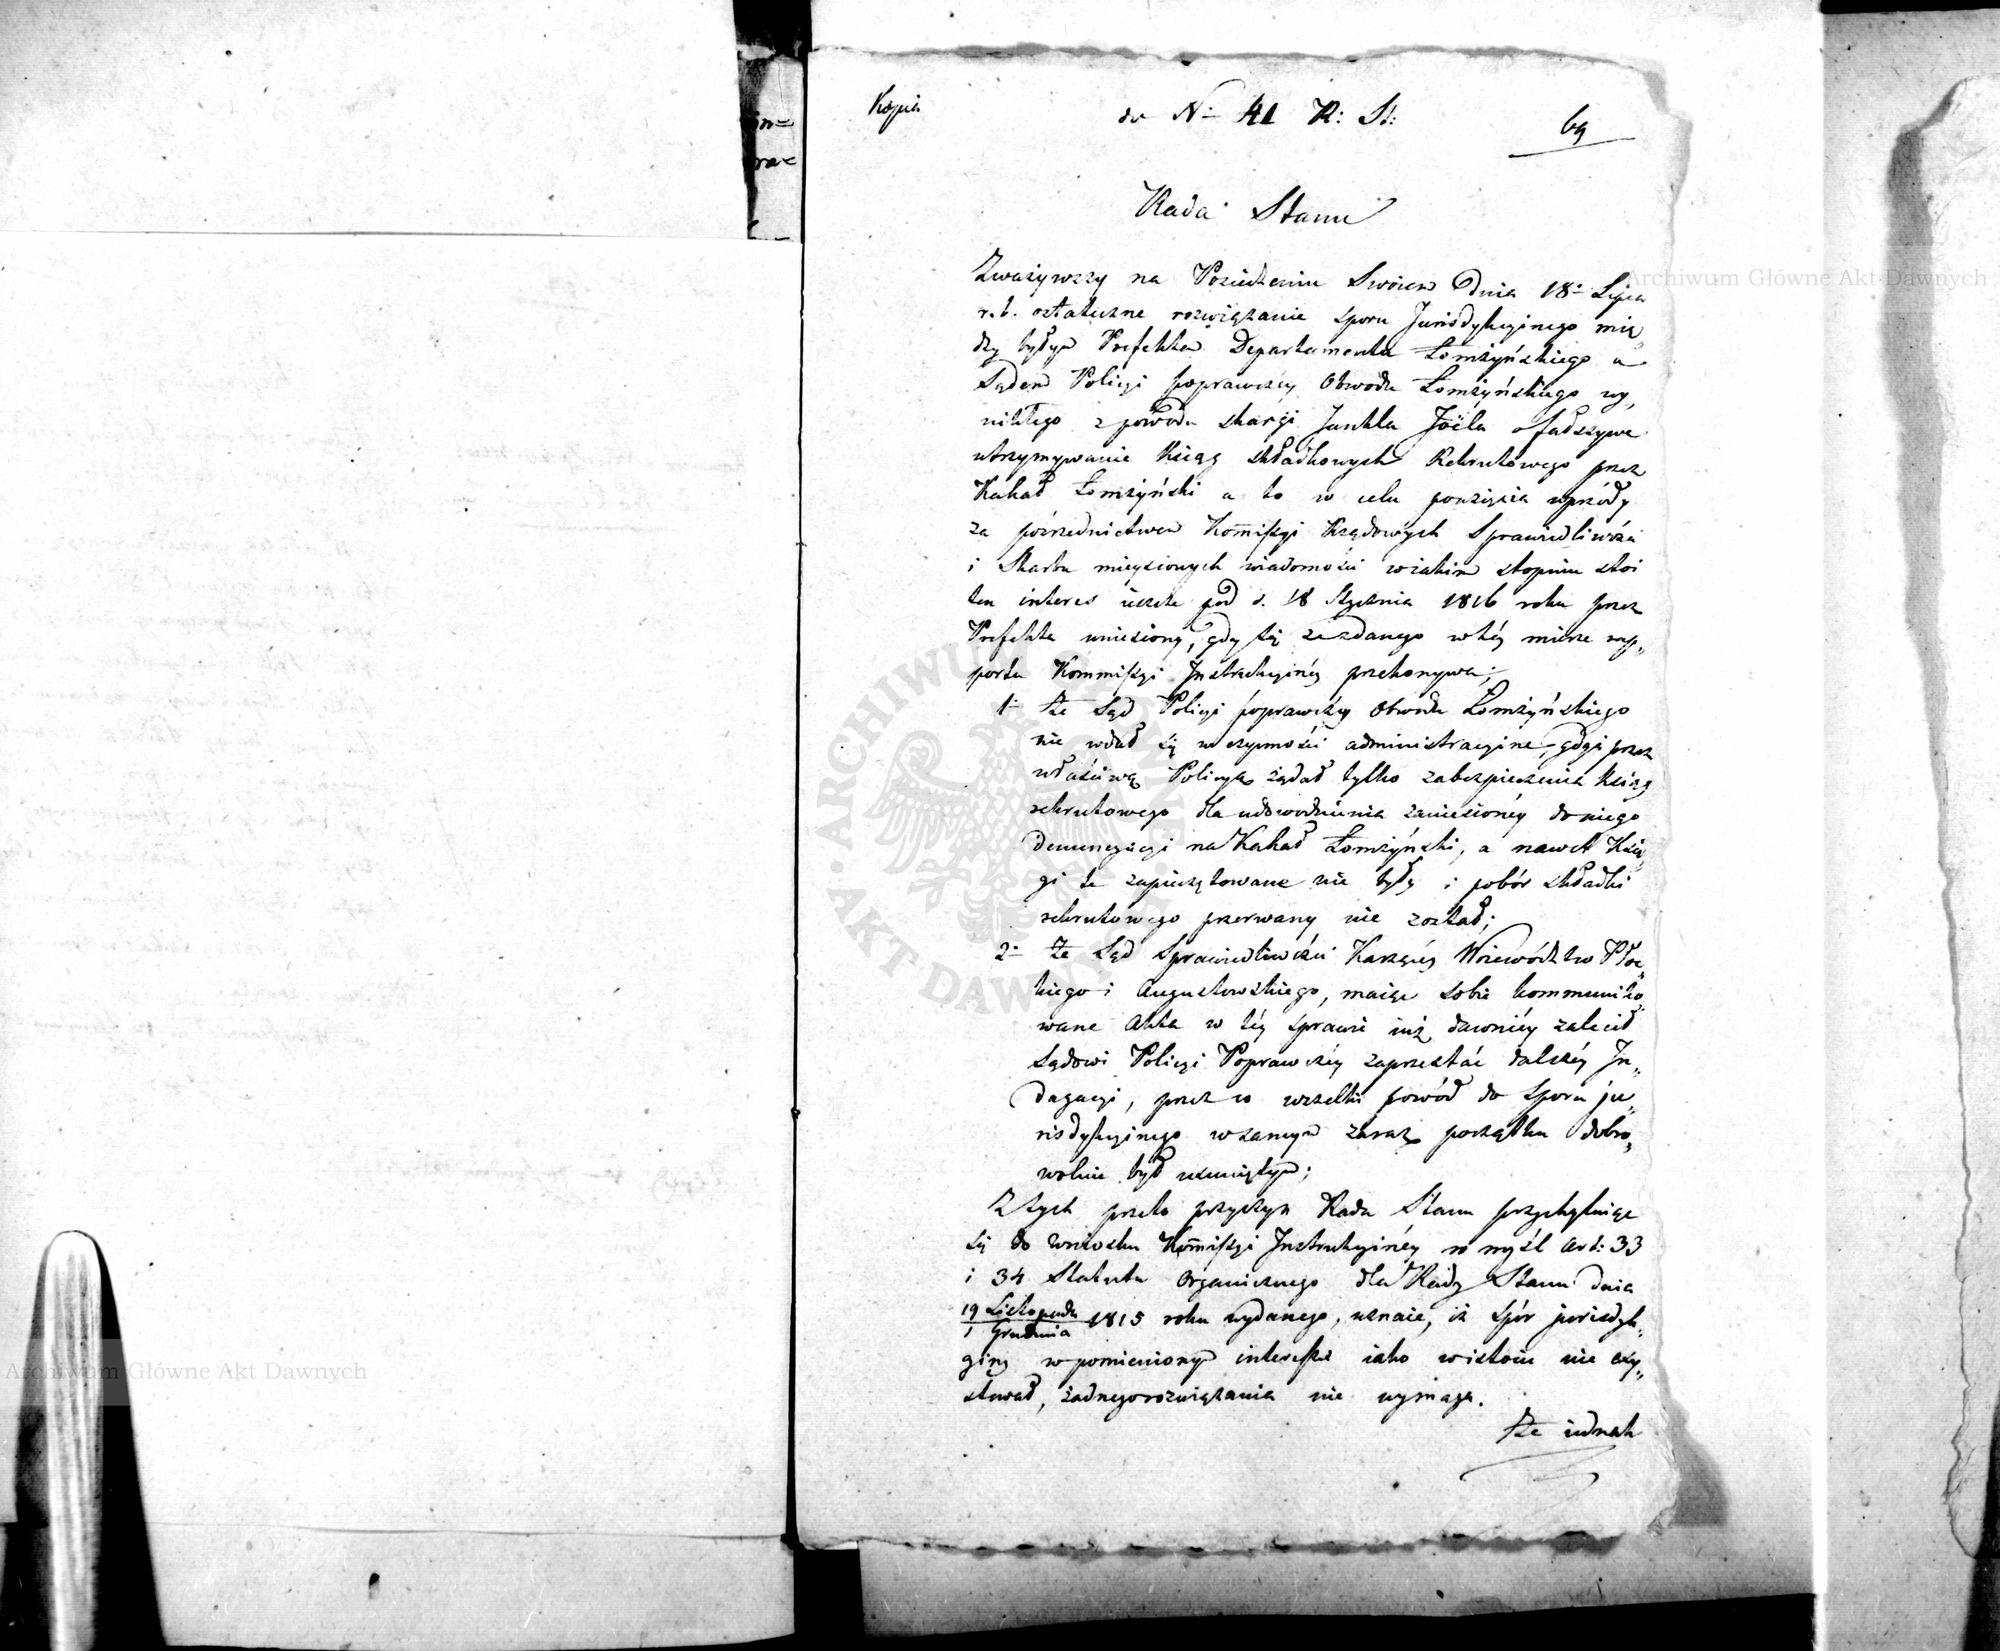 Kopia
do No 41 R: St:
69
Rada Stanu
Zważywszy na Posiedzeniu Swoiem Dnia 18o Lipca
r. b. ostateczne rozwiązanie sporu Jurisdykcyinego mię„
dzy byłym Prefektem Departamentu Łomżyńskiego a
Sądem Policyi poprawczéy Obwodu Łomżyńskiego wy„
nikłego z powodu skargi Jankla Joëla o fałszywe
utrzymywanie Ksiąg składkowych Rekrutowego przez
Kahał Łomżyński a to w celu powzięcia wprzódy
za pośrednictwem Kommissyi Rządowych Sprawiedliwości
i Skarbu mieyscowych wiadomości w iakim stopniu stoi
ten interes ieszcze pod d. 18 Stycznia 1816 roku przez
Prefekta wniesiony, gdy się ze zdanego w téy mierze rap„
portu Kommissyi Instrukcyinéy przekonywa;
1o że Sąd Policyi poprawczéy Obwodu Łomżyńskiego
nie wdał się w czynności administracyine, gdyż przez
właściwą Policyą żądał tylko zabezpieczenia Ksiąg
rekrutowego dla udowodnienia zaniesionéy do niego
denuncyacyi na Kahał Łomżyński, a nawet Księ„
gi te zapieczętowane nie były i pobór składki
rekrutowego przerwany nie został;
2o że Sąd Sprawiedliwości Karzącéy Woiewództw Płoc„
kiego i Augustowskiego, maiąc sobie kommuniko„
wane Akta w téy sprawie iuż dawniéy zalecił
Sądowi Policyi Poprawczéy zaprzestać dalszéy In„
dagacyi, przez co wszelki powód do sporu ju„
risdykcyinego w samym zaraz początku dobro„
wolnie był usuniętym;
Z tych przeto przyczyn Rada Stanu przychylaiąc
się do wniosku Kommissyi Instrukcyinéy w myśl Art: 33
i 34 Statutu Organicznego dla Rady Stanu dnia
19 Listopada / 1 Grudnia 1815 roku wydanego, uznaie, iż spór jurisdyk„
cyiny w pomienionym interessie iako w istocie nie exy„
stował, żadnego rozwiązania nie wymaga.
że iednak
Archiwum Główne Akt Dawnych
Archiwum Główne Akt Dawnych
ARCHIWUM
AKT DAWNYCH